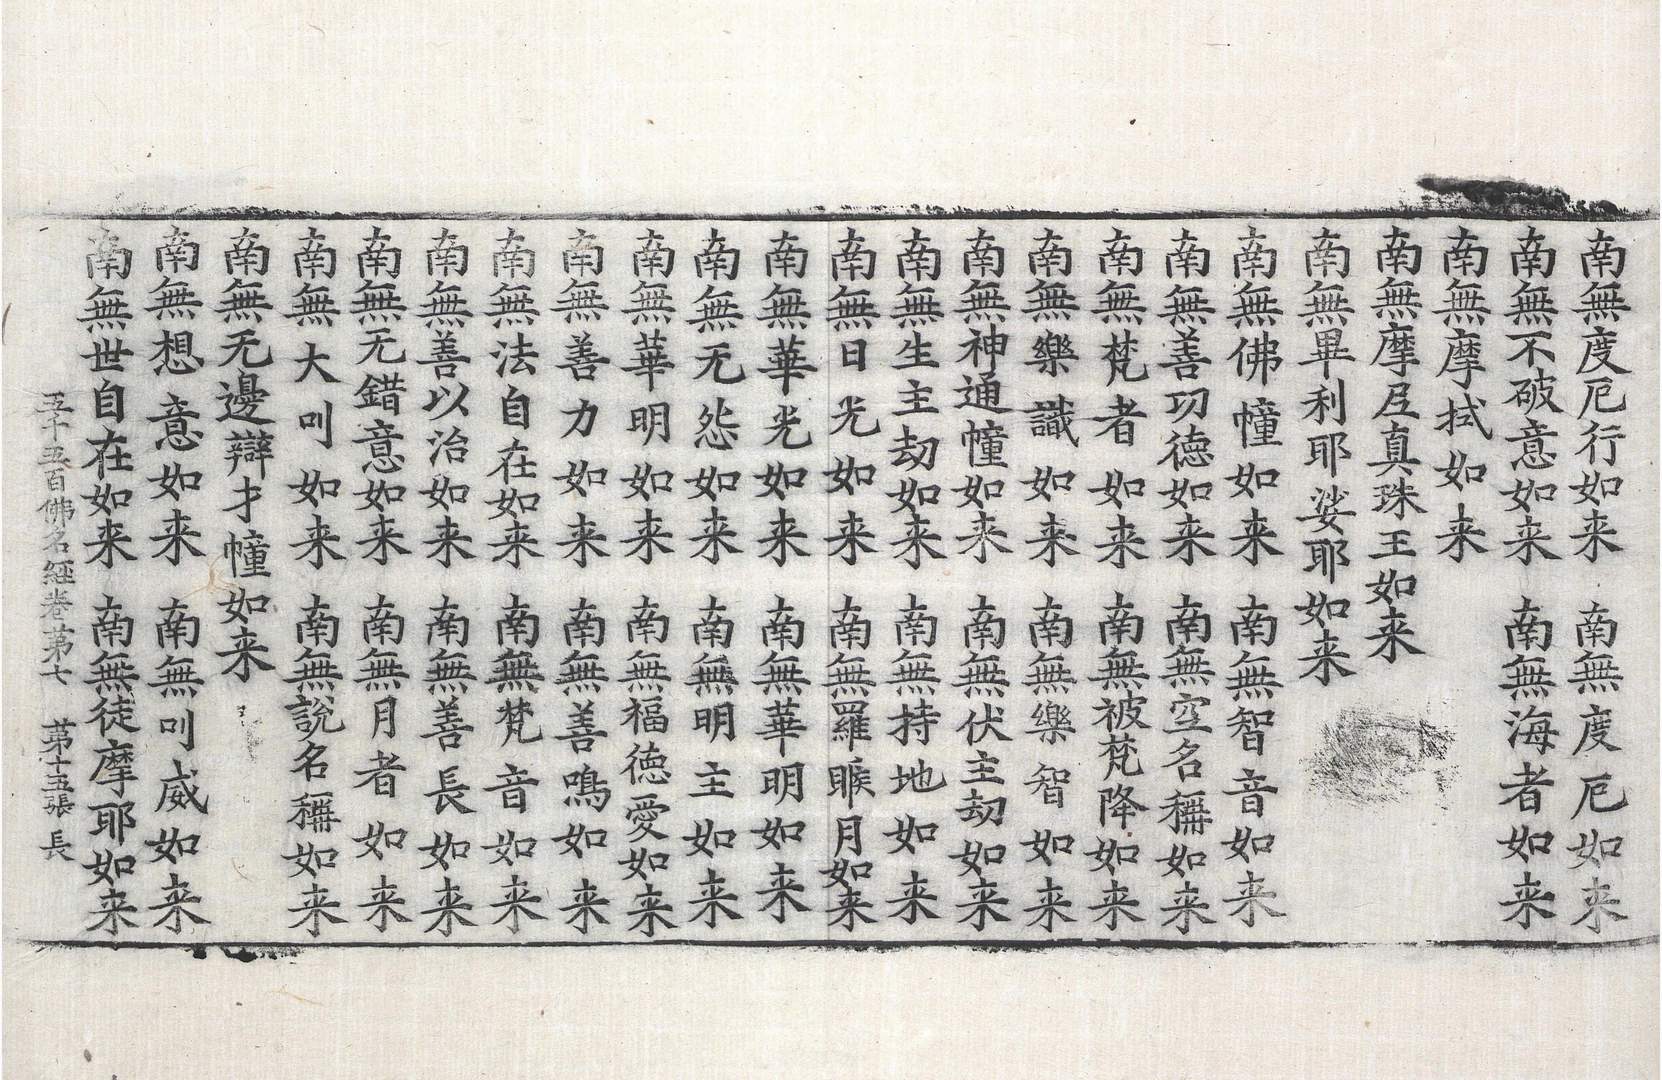 南無度厄行如来　南無度厄如来
南無不破意如来　南無海者如来
南無摩拭如来
南無摩𡰱真珠王如来
南無畢利耶娑耶如来
南無佛幢如来　南無智音如来
南無善㓛德如来　南無空名稱如来
南無梵者如来　南無被梵降如来
南無樂識如来　南無樂智如来
南無神通幢如来　南無伏主劫如来
南無生主劫如来　南無持地如来
南無日光如来　南無羅睺月如来
南無華光如来　南無華明如来
南無无怨如来　南無明主如来
南無華明如来　南無福德愛如来
南無善力如来　南無善鳴如来
南無法自在如来　南無梵音如来
南無善以治如来　南無善長如来
南無无錯意如来　南無月者如来
南無大叫如来　南無說名稱如来
南無无邊辯才幢如来
南無想意如来　南無叫威如来
南無世自在如来　南無徒摩耶如来
五千五百佛名經卷第七　第十五張　長